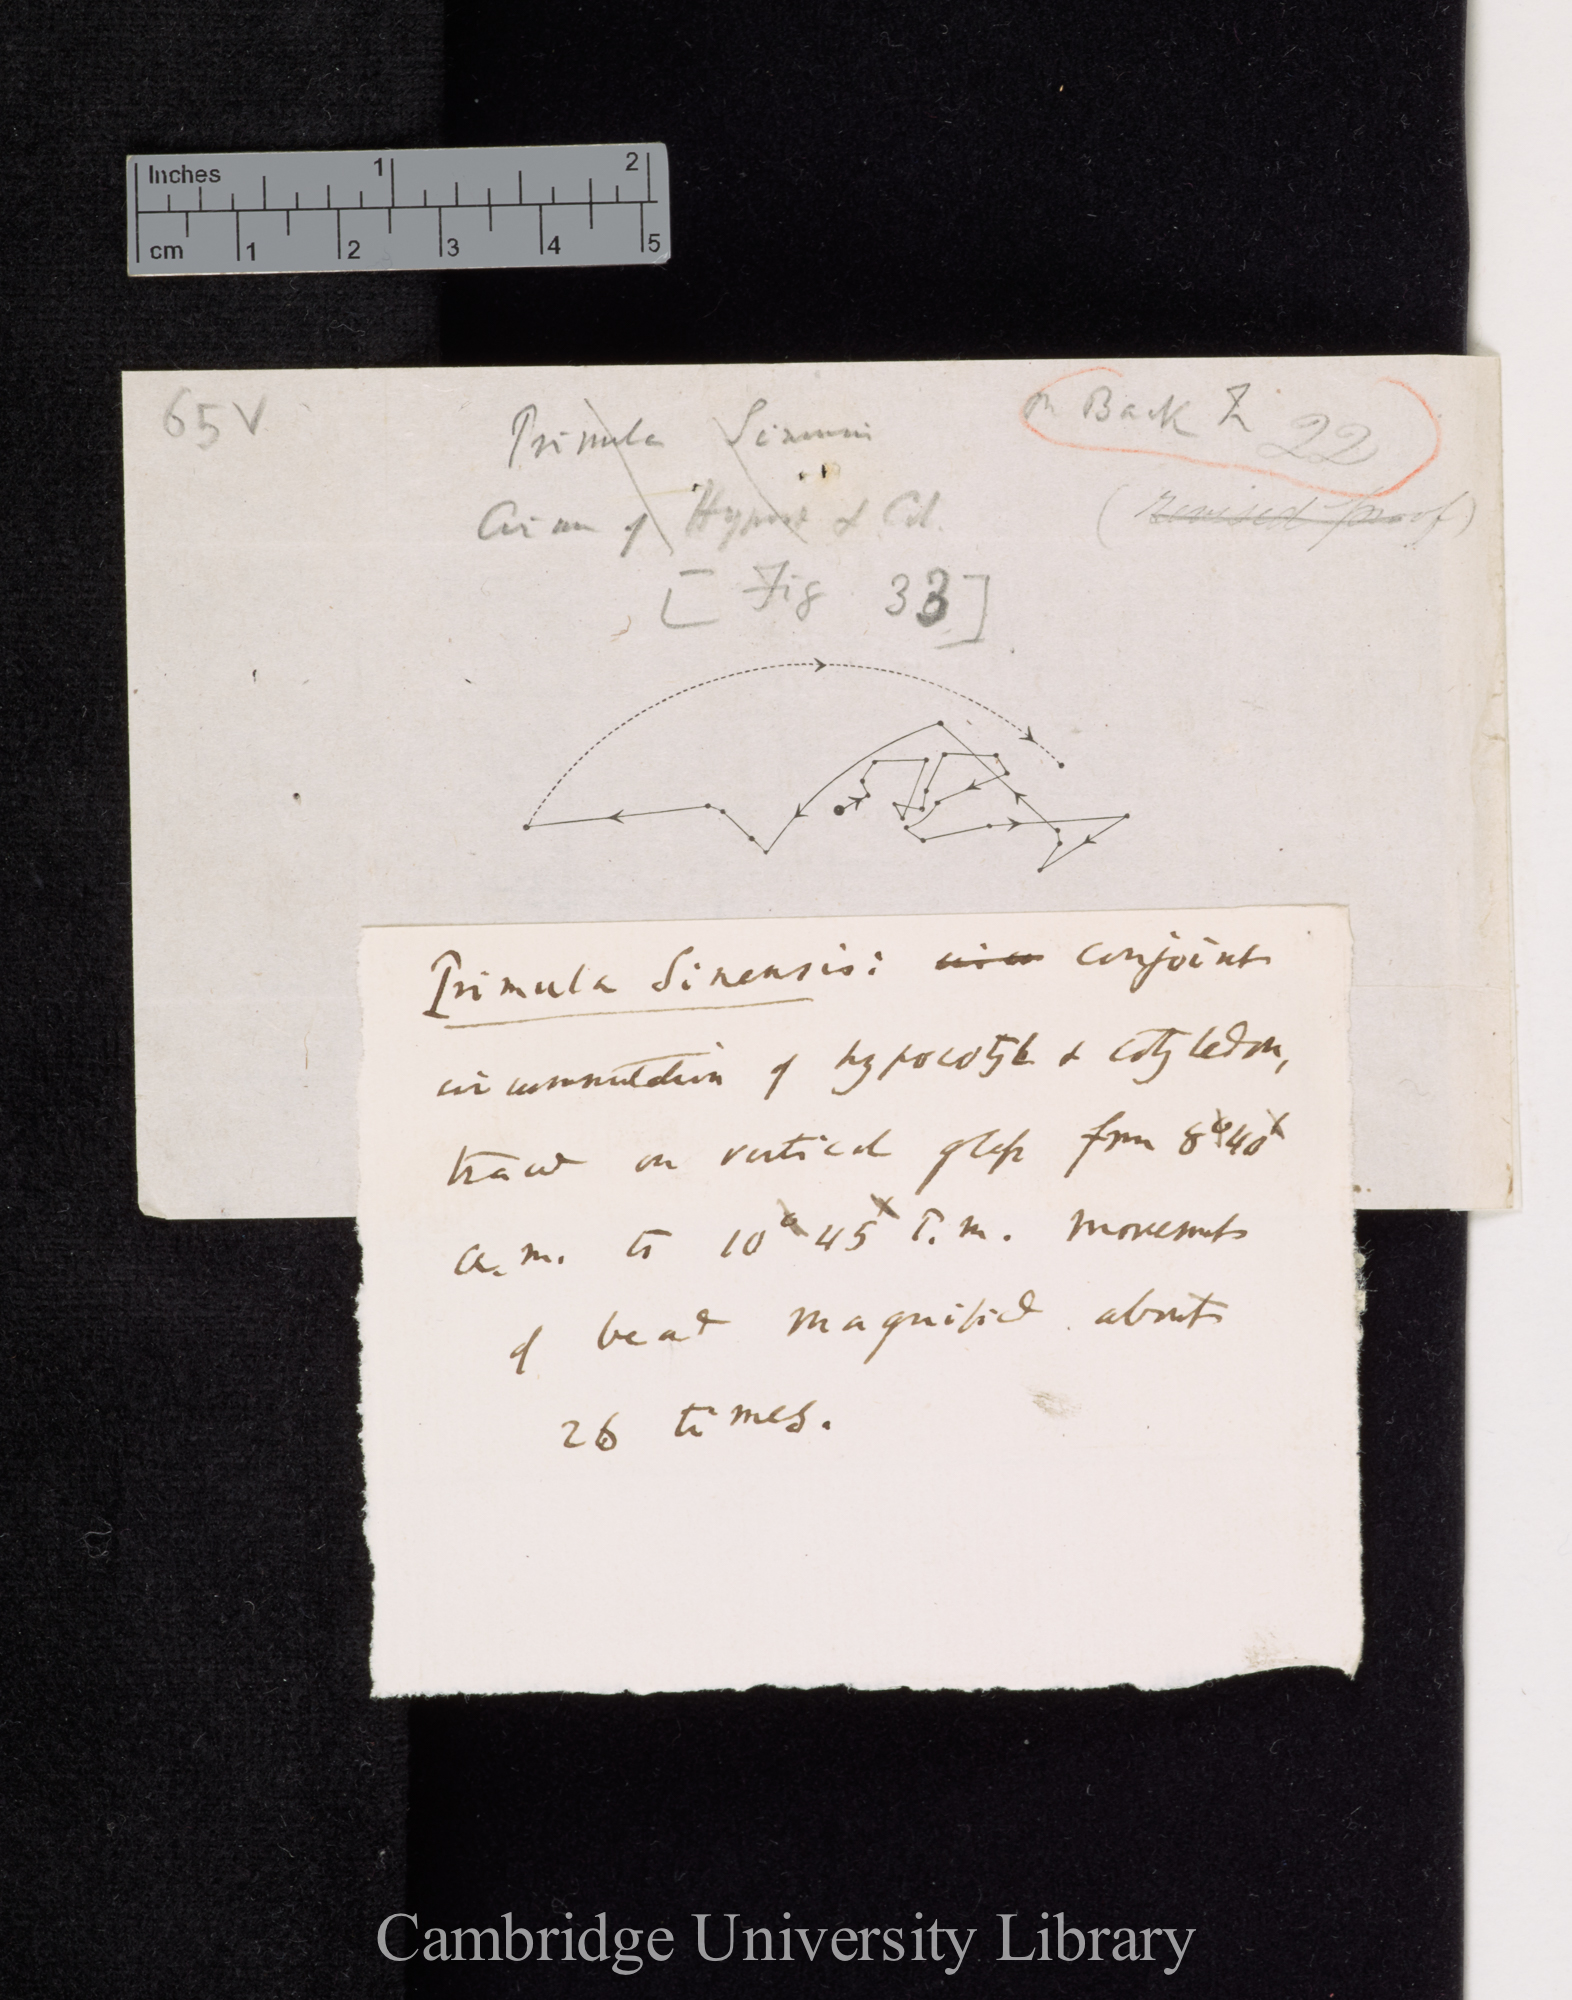 Inches 1 2
cm 1 2 3 4 5
65 V
on Back Z 22
Primula Sinensis
Circum of Hypoc & Cot.
(Revised proof)
[Fig 33]
Primula Sinensis: conjoint
circumnutation of hypocotyl & cotyledon,
traced on vertical glass from 8° 40'
a.m. to 10° 45' P.m. Movements
of bead magnified about
26 times.
Cambridge University Library